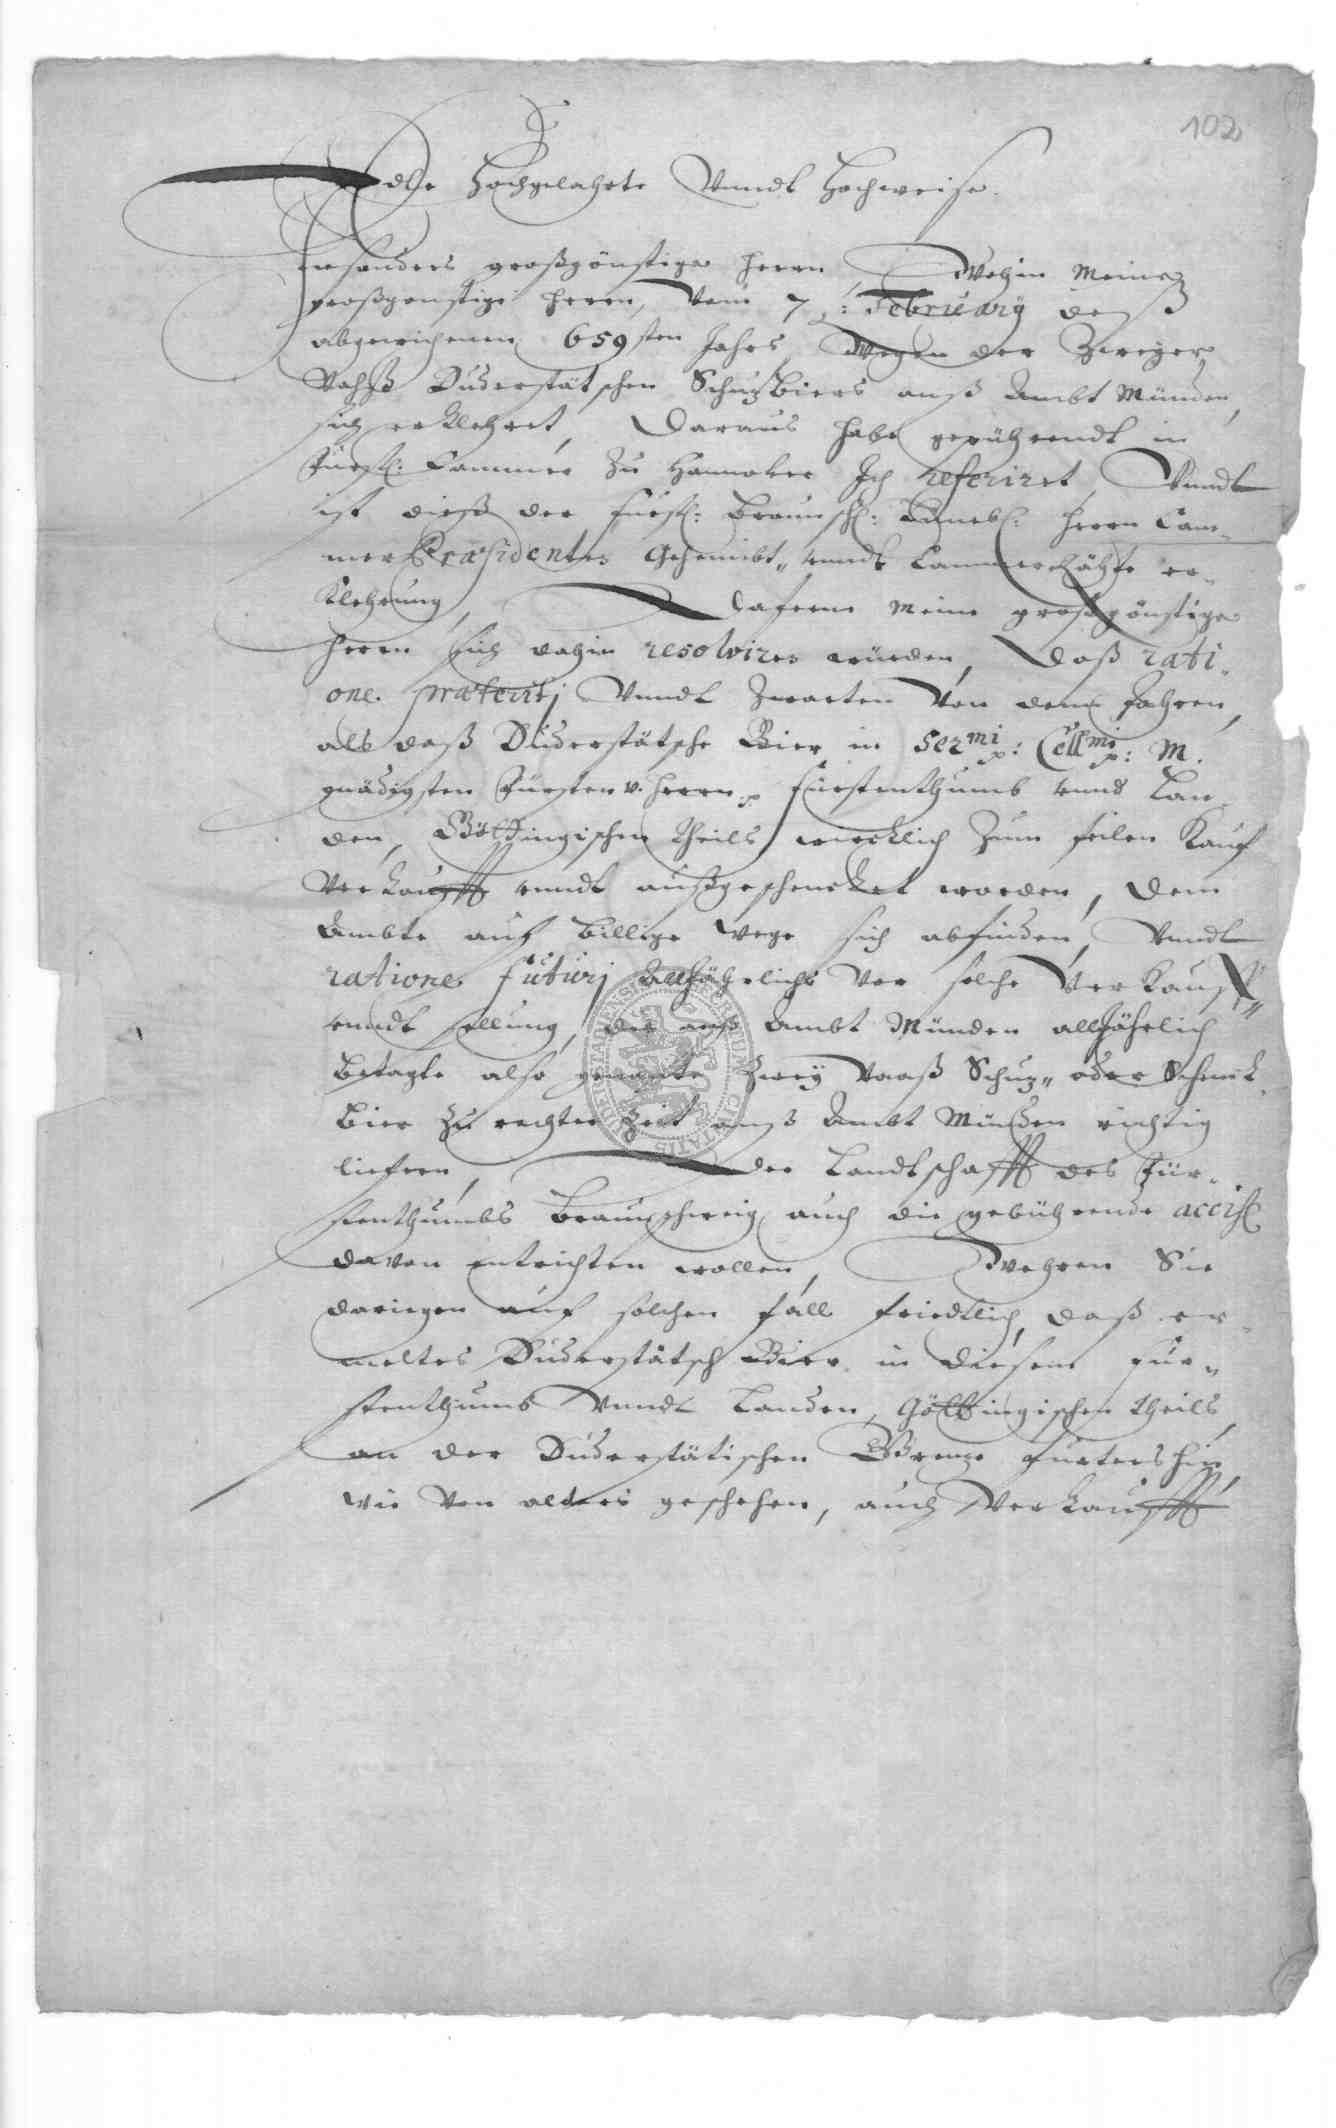 102
Edle Hochgelahrte Vnndt Hochweise.
Insonders großgönstige Herrn, Wohin Meine
großgönstige Herrn, vom 7: February deß
abgewichenen 659sten Jahrs wegen der Zweyer
Vahß Duderstätschen SchuzBiers aufs Ambt Münden
sich erklehret, Daraus habe gepührendt in
Fürstl: Cammer zu Hannover Ich referiret, Vnndt
ist dieß der Fürstl: Braunschl: Lunebl: Herrn Cam-
mer Præsidenten Geheimbt„ vnndt CammerRähte er-
klehrung, Daferne Meine großgönstige
Herrn sich dahin resolviren würden, Daß rati-
one præteritj Vnndt Zwarten Von denen Jahren,
als daß Duderstätsche Bier in Sermi: Cellmi: M.
gnädigsten Fürsten v. Herrn Fürstenthumb vnnd Lan-
den, Göttingischen theils wircklich Zum feilen Kauf
Verkaufft vnndt außgeschencket worden, dem
Ambte auf billige wege sich abfinden, Vnndt
ratione futurj Alljährlichs Vor solche Verkauf„
vnndt sellung, die aufs Ambt Münden alljährlich
betagte also genante Zwey Vaaß Schuz„ oder Schenck
Bier zu rechter Zeit aufs Ambt Münden richtig
liefern, der Landtschafft des Für-
stenthumbs Braunschweig auch die gebührende accise
davon entrichten wollen, Wehren Sie
dariegen auf solchen fall friedtlich, daß er-
meltes Duderstätsch Bier in diesem Für-
stenthumb Vnndt Landen, Göttingischen theils,
an der Duderstätischen Grenze furtershin,
wie Von alters geschehen, auch Verkaufft
SIGILLUM CIVITATIS DUDERSTADIENSIS